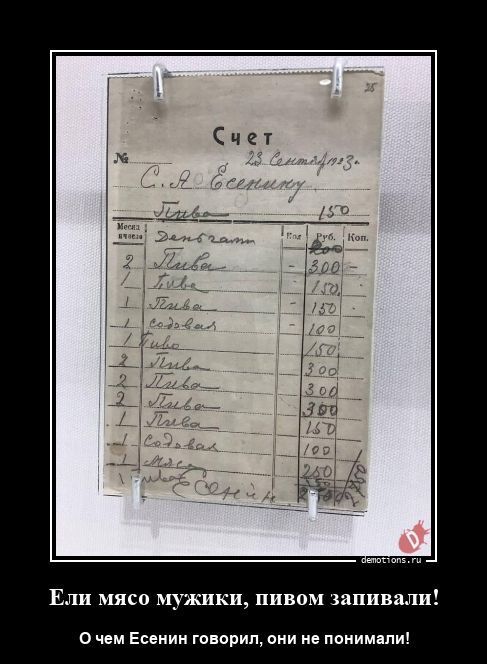 25
Счет
№ 23 Сентяб 1923 г.
С. А. Есенину
Пива 150
Месяц и число Кол Руб. Коп.
Деньгами
2 Пива - 300 -
1 Пива 150
1 Пива - 150
1 Содовая - 100
1 Пиво 150
2 Пива 300
2 Пива 300
2 Пива 300
1 Пива 150
1 Содовая 100
1 Мясо 250
1 Есенин
demotions.ru
Ели мясо мужики, пивом запивали!
О чем Есенин говорил, они не понимали!